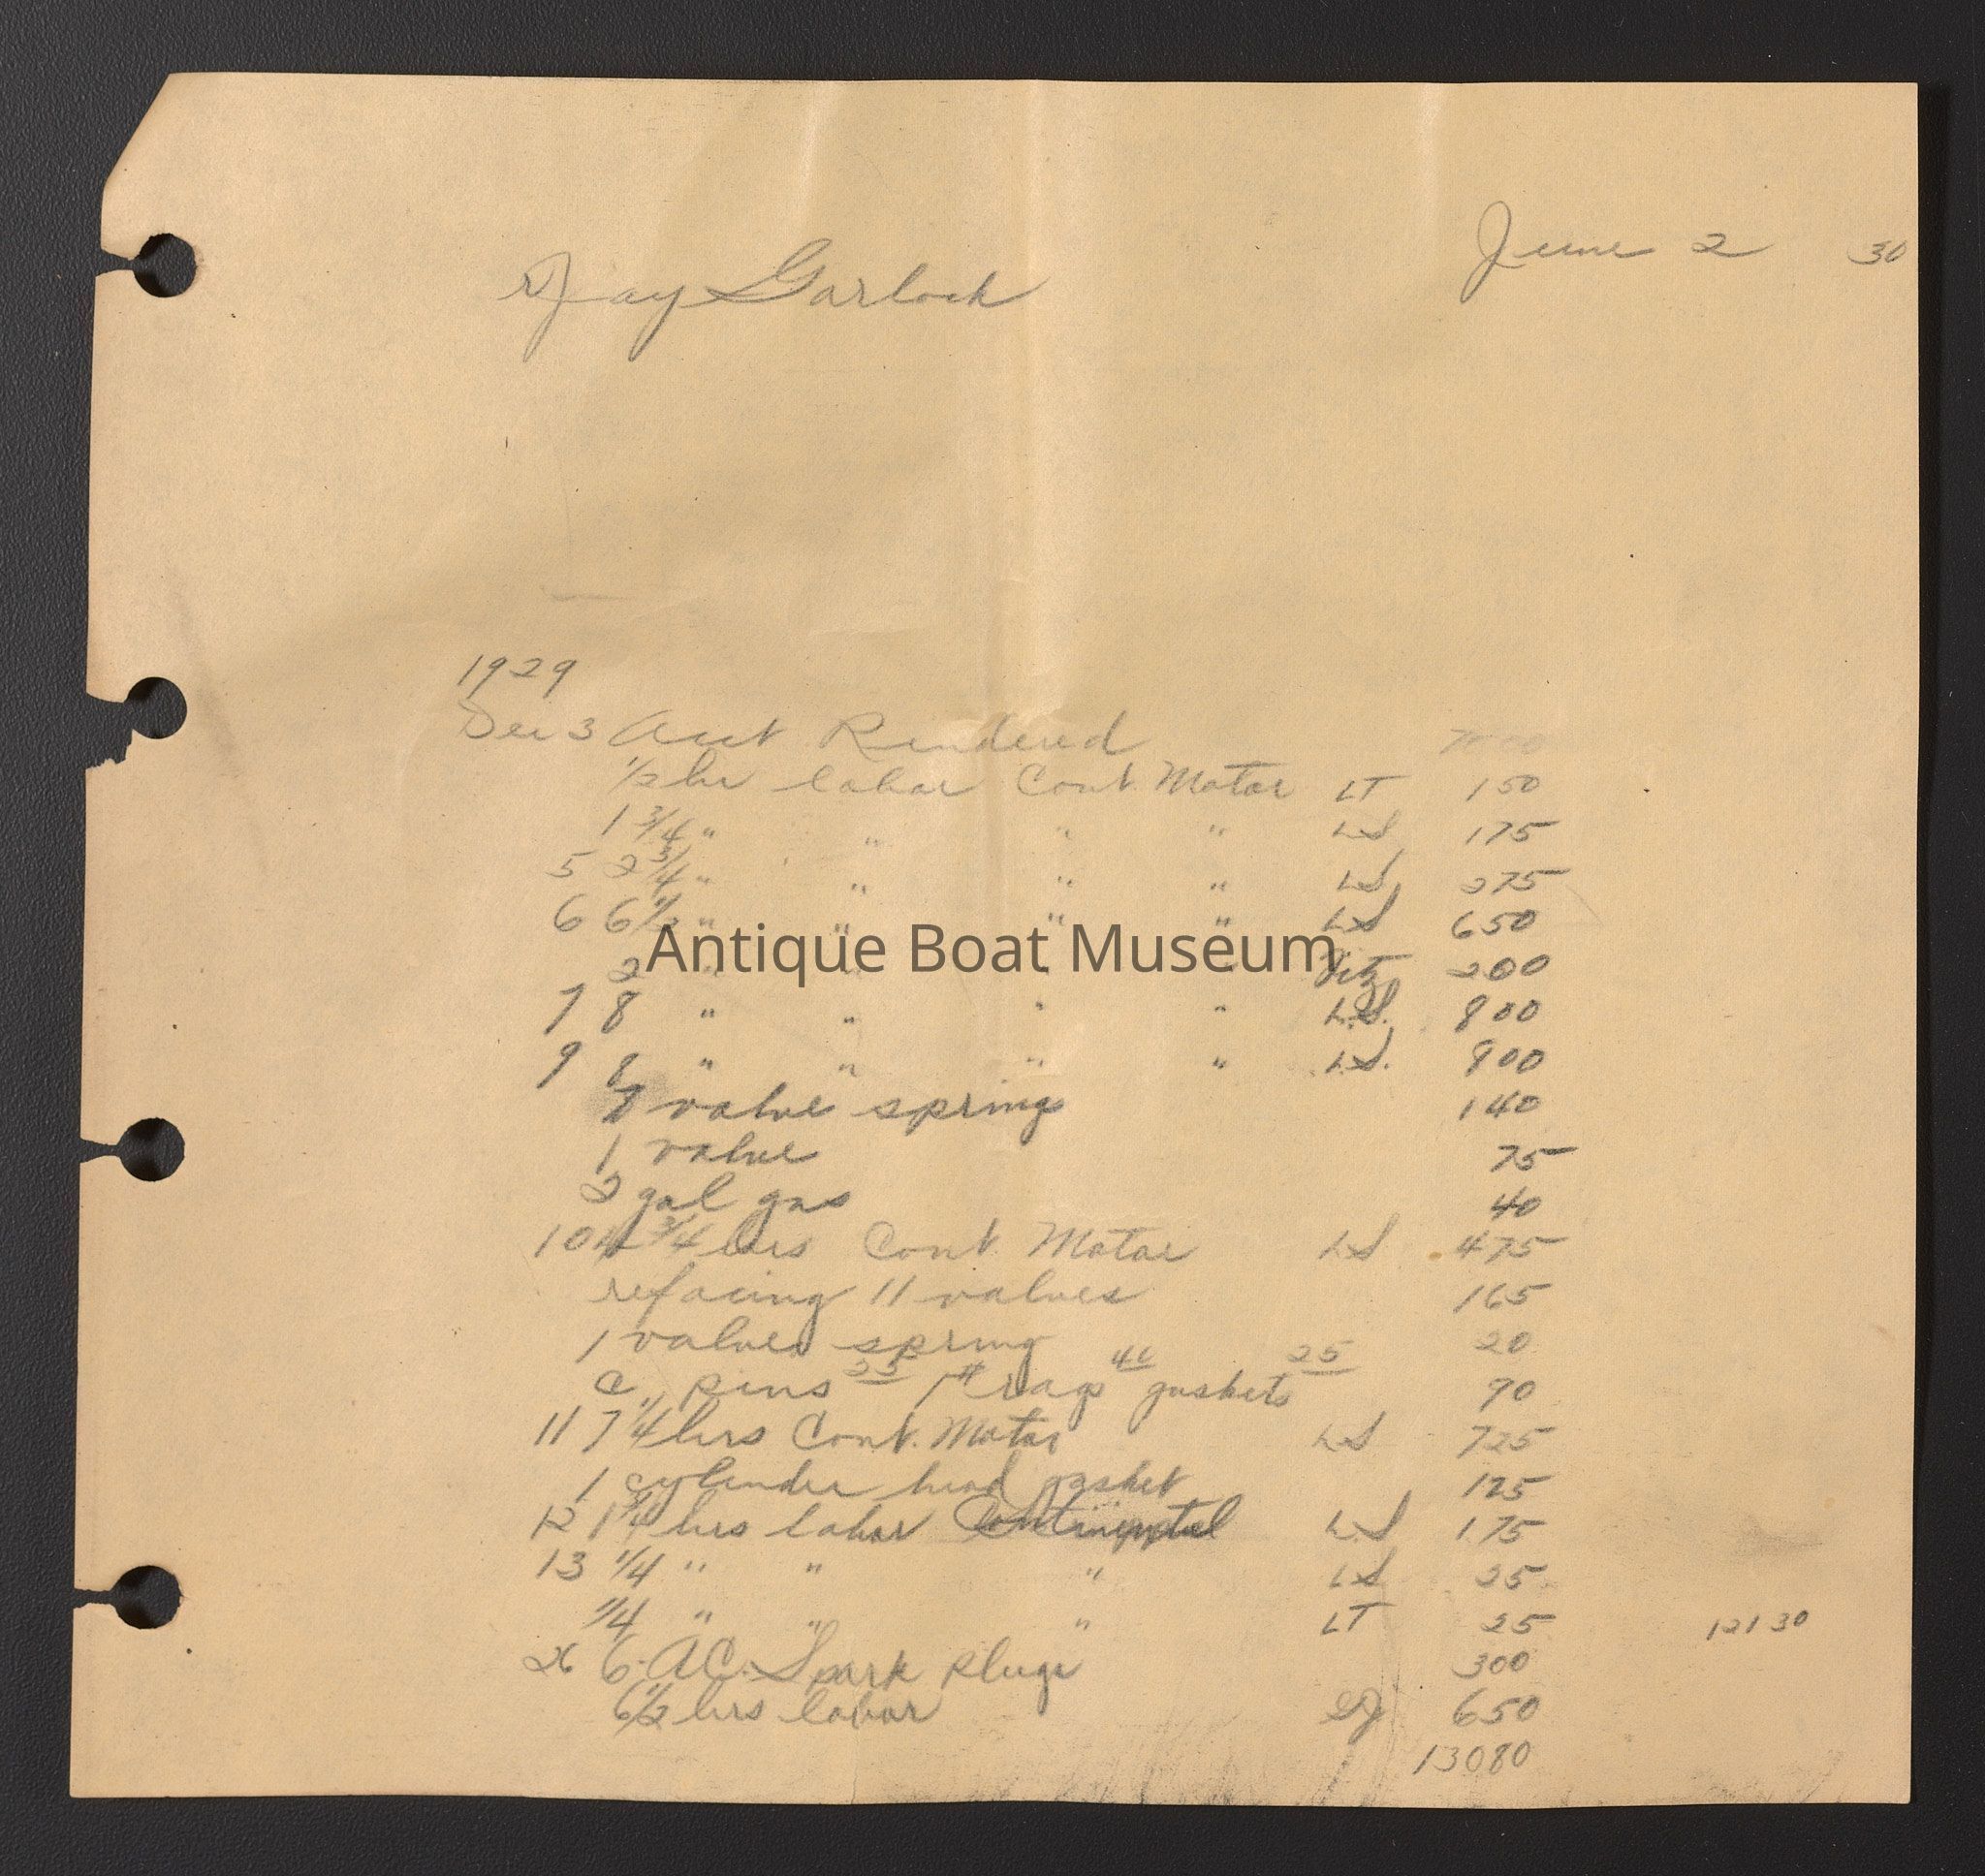 June 2 30
Jay Garlock
1929
Dec 3 Acct Rendered
1/2 hr labor Cont. Motor LT 150
1 3/4 " " " " LS 175
5 2 3/4 " " " " LS 275
6 6 1/2 " " " " LS 650
Antique Boat Museum
2 " " " " 200
7 8 " " " " L.S. 800
9 8 " " " " L.S. 800
7 valve springs 140
1 valve 75
2 gal gas 40
10 4 3/4 hrs Cont. Motor LS 475
refacing 11 valves 165
1 valve spring 20
C. pins 25 1# rags 40 gaskets 25 90
11 7 1/4 hrs Cont. Motor LS 725
1 cylinder head gasket 125
12 1 3/4 hrs labor Continental LS 175
13 1/4 " " " LS 25
1/4 " " " LT 25 121 30
26 6 A.C. Spark plugs 300
6 1/2 hrs labor 650
13080